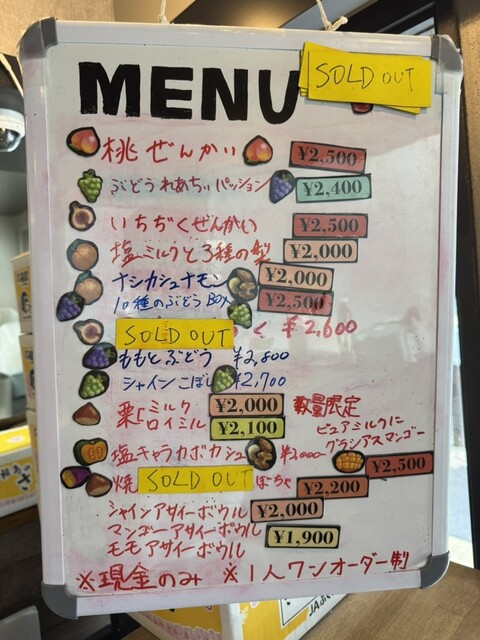 MENU
SOLD OUT
桃ぜんかい ¥2,500
ぶどうれあちぃパッション ¥2,400
いちぢくぜんかい ¥2,500
塩ミルクと3種の梨 ¥2,000
ナシカシュナモン ¥2,000
10種のぶどうBOX ¥2,500
SOLD OUT く ¥2,600
ももとぶどう ¥2,800
シャインこぼし ¥2,700
栗 ミルク ¥2,000
ロイミル ¥2,100
数量限定
ピュアミルクに
グラシアスマンゴー
¥2,500
塩キャラカボカシュ ¥2,000
焼 SOLD OUT ぼちゃ ¥2,200
シャインアサイーボウル ¥2,000
マンゴーアサイーボウル
モモアサイーボウル ¥1,900
※現金のみ ※1人ワンオーダー制